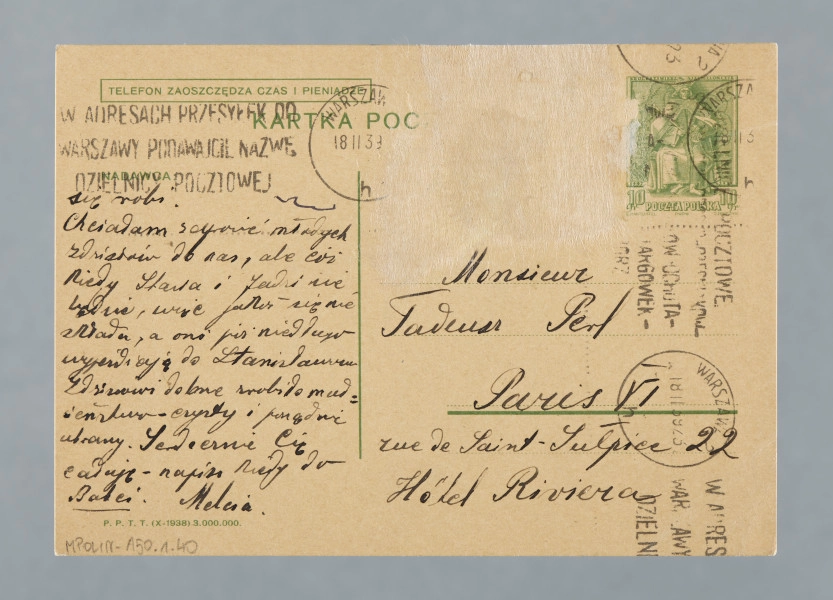 TELEFON ZAOSZCZĘDZA CZAS I PIENIĄDZE
W ADRESACH PRZESYŁEK DO
WARSZAWY PODAWAJCIE NAZWĘ
DZIELNICY POCZTOWEJ
KARTKA POC
NADAWCA
WARSZAW
18 II 39
h
się robi.
Chciałam zaprosić młodych
Zdzisiów do nas, ale coś
kiedy Stasia i Jadzi nie
będzie, więc jakoś się nie
składa, a oni już niedługo
wyjeżdżają do Stanisławowa
Zdzisiowi dobrze zrobiło mał=
żeństwo - czysty i porządnie
ubrany. Serdecznie Cię
całuję - napisz kiedy do
Babci. Melcia.
P. P. T. T. (X-1938) 3.000.000.
MPOLIN-A50.1.40
10
POCZTA POLSKA
10
Monsieur
Tadeusz Perl
Paris VI
rue de Saint-Sulpice 22
Hôtel Riviera
WARSZAW
18 II 39
h
POCZTOWE
TARGÓWEK-
W ADRES
WARSZAWY
DZIELNI